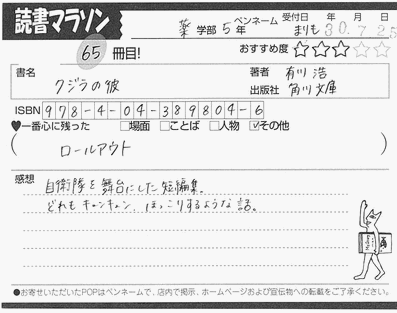 読書マラソン
薬 学部 5 年
ペンネーム まりも
受付日 年 月 日
30.7.25
65 冊目!
おすすめ度 ☆☆☆☆☆
書名 クジラの彼
著者 有川 浩
出版社 角川文庫
ISBN 978-4-04-389804-6
♥一番心に残った □場面 □ことば □人物 ☑その他
( ロールアウト )
感想
自衛隊を舞台にした短編集。
どれもキュンキュン、ほっこりするような話。
●お寄せいただいたPOPはペンネームで、店内で掲示、ホームページおよび宣伝物への転載をご了承ください。